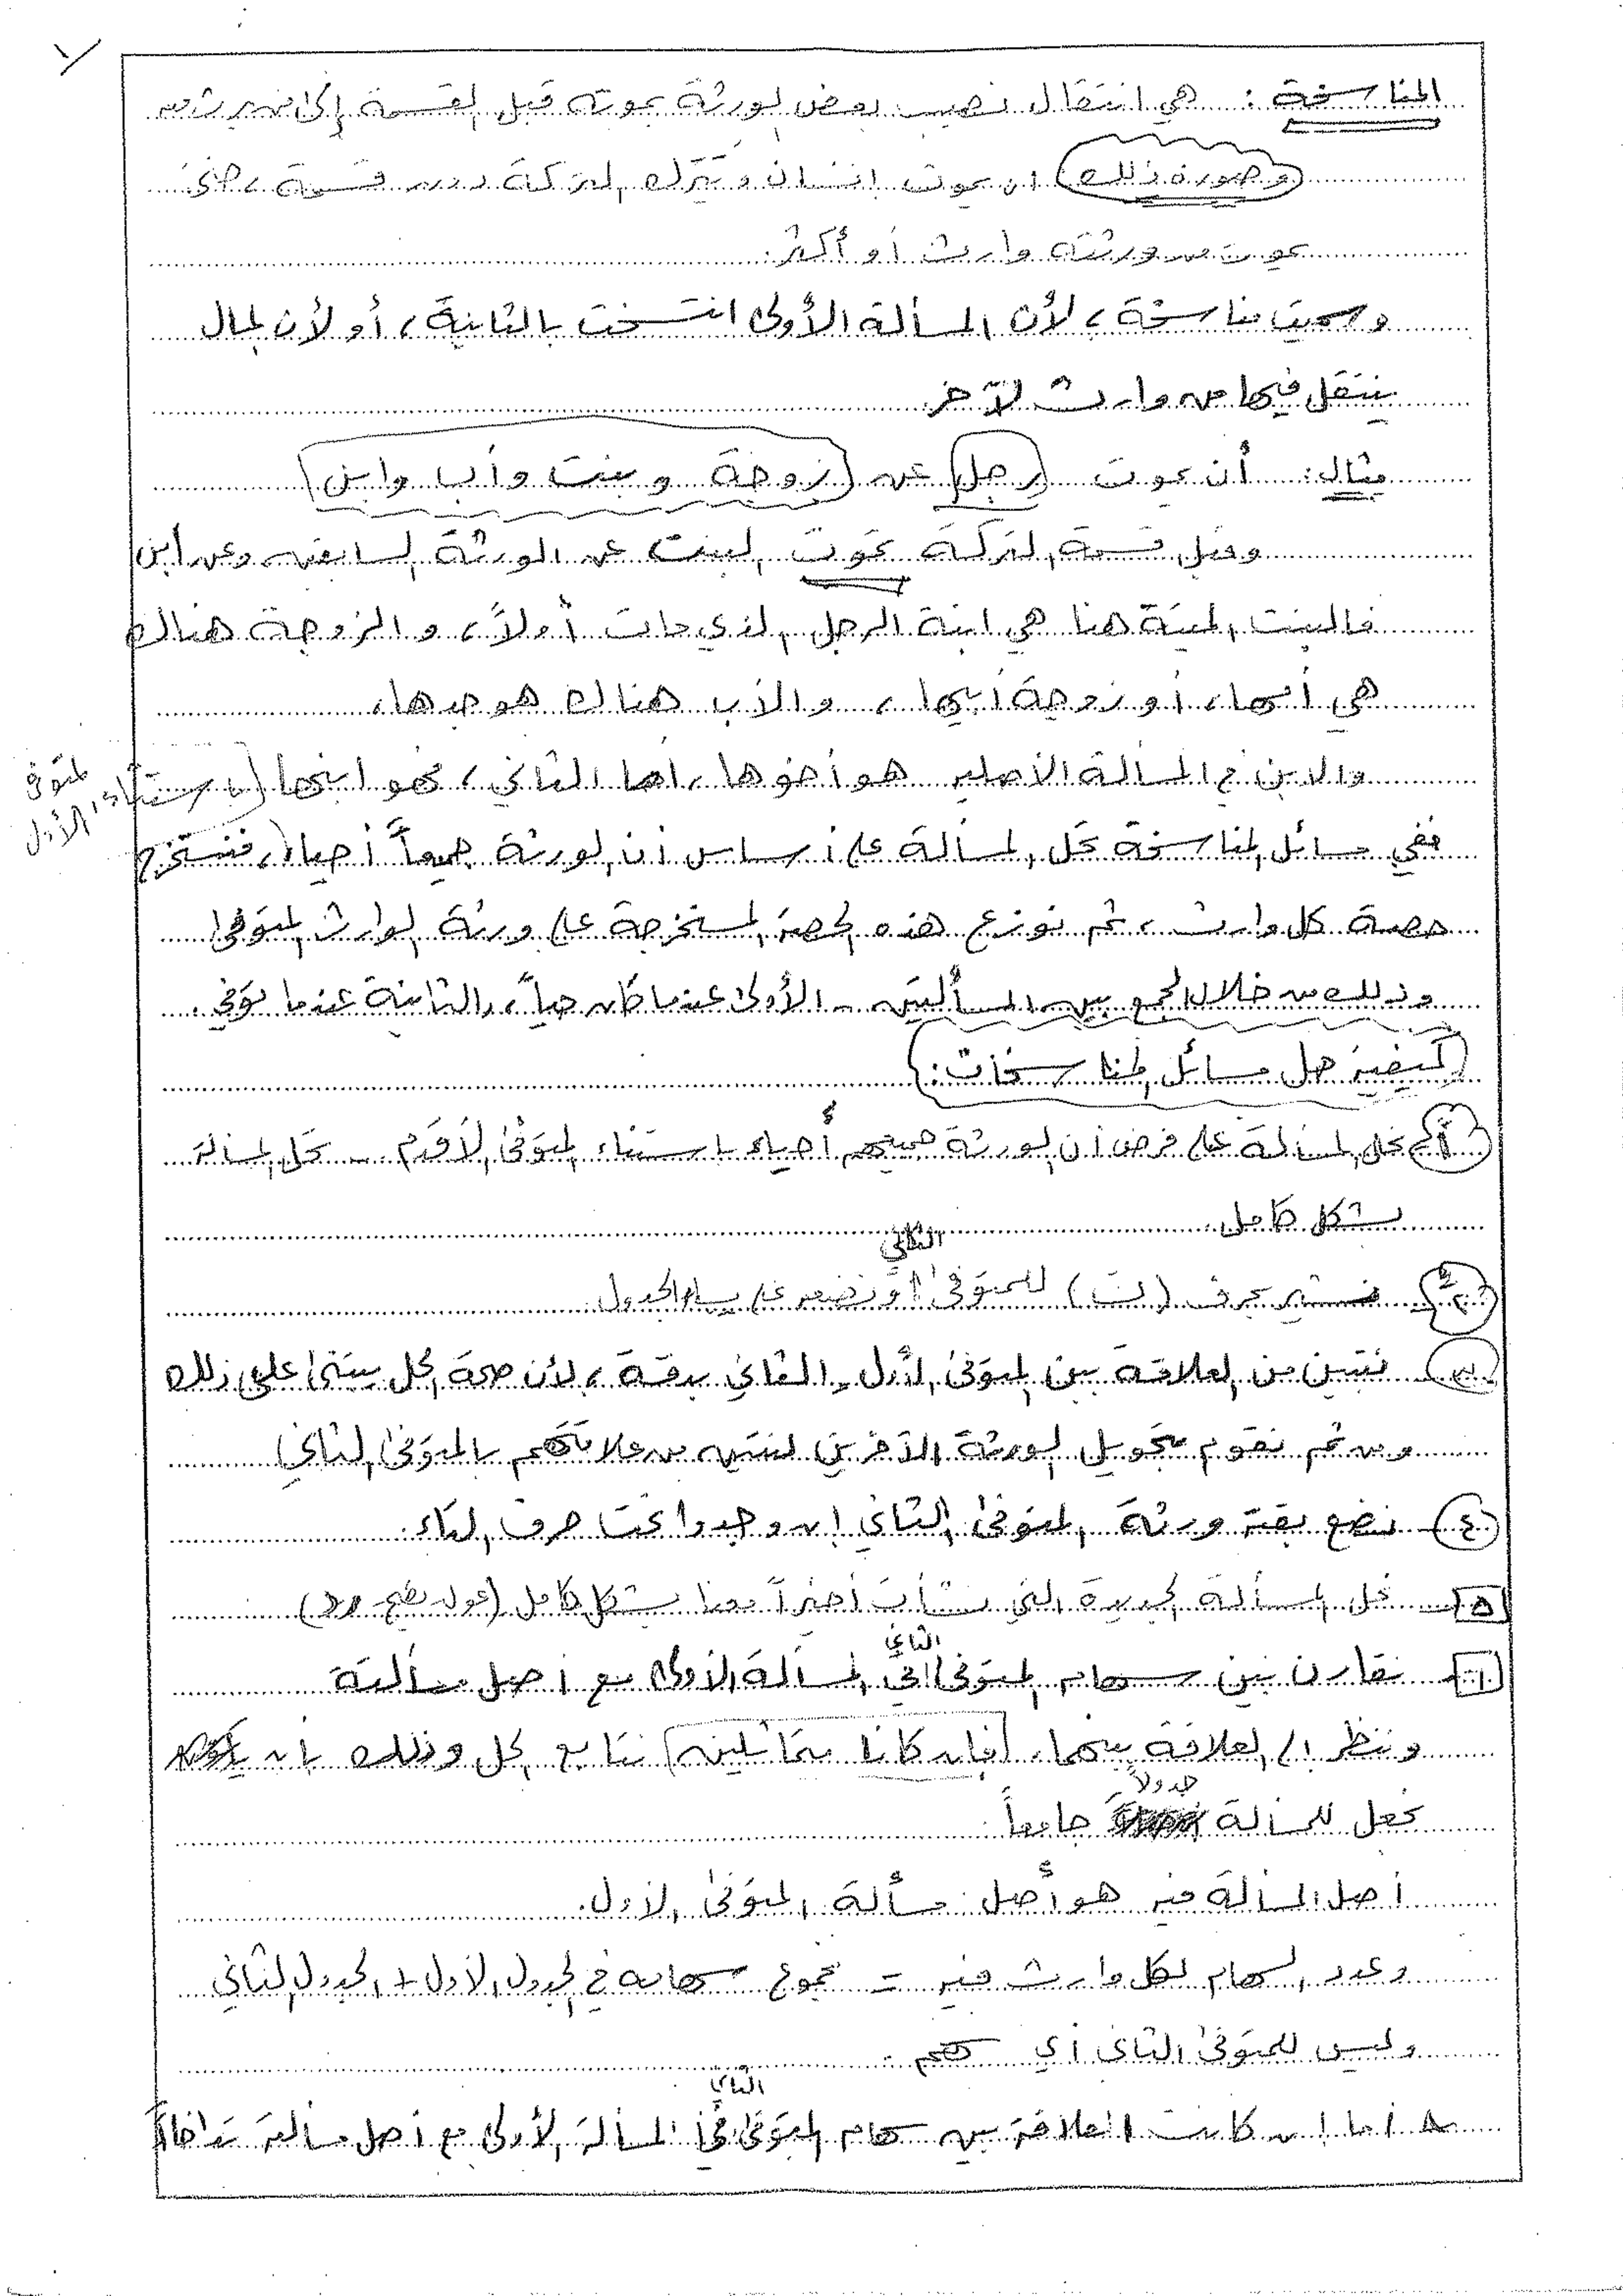 المناسخة : هي انتقال نصيب بعض الورثة بموته قبل القسمة إلى من يرث منه
وصورة ذلك أن يموت إنسان وتترك التركة دون قسمة ، حتى
يموت من ورثته وارث أو أكثر.
وسميت مناسخة ، لأن المسألة الأولى انتسخت بالثانية ، أو لأن المال
ينتقل فيها من وارث لآخر.
مثال : أن يموت (رجل) عن (زوجة وبنت وأب وابن)
وقبل قسمة التركة تموت البنت عن الورثة السابقين وعن ابن
فالبنت الميتة هنا هي ابنة الرجل الذي مات أولاً ، والزوجة هناك
هي أمها ، أو زوجة أبيها ، والأب هناك هو جدها ،
والابن في المسألة الأصلية هو أخوها ، أما الثاني ، فهو ابنها
ففي مسائل المناسخة تحل المسألة على أساس أن الورثة جميعاً أحياء (باستثناء المتوفى الأول ، فنستخرج
حصة كل وارث ، ثم نوزع هذه الحصة المستخرجة على ورثة الوارث المتوفى
وذلك من خلال الجمع بين المسألتين - الأولى عندما كان حياً ، والثانية عندما توفي .
(كيفية حل مسائل المناسخات :)
١- نحل المسألة على فرض أن الورثة جميعهم أحياء باستثناء المتوفى الأقدم - نحل المسألة
بشكل كامل
٢- نشير بحرف (ت) للمتوفى الثاني ونضعه على يسار الجدول
٣- نتبين من العلاقة بين المتوفى الأول والثاني بدقة ، لأن صحة الحل يبتنى على ذلك
ومن ثم نقوم بتحويل الورثة الآخرين لنتبين من علاقتهم بالمتوفى الثاني
٤- نضع بقية ورثة المتوفى الثاني إن وجدوا تحت حرف التاء.
٥- نحل المسألة الجديدة التي نشأت أخيراً بشكل كامل (عول تصحيح رد)
٦- نقارن بين سهام المتوفى الثاني في المسألة الأولى مع أصل مسألته
وننظر إلى العلاقة بينهما ، (فإن كانا متماثلين) نتابع الحل وذلك بأن
نجعل للمسألة جدولاً جامعاً
أصل المسألة فيه هو أصل مسألة المتوفى الأول.
وعدد السهام لكل وارث فيه = مجموع سهامه في الجدول الأول + الجدول الثاني
وليس للمتوفى الثاني أي سهم .
أما إن كانت العلاقة بين سهام المتوفى الثاني في المسألة الأولى مع أصل مسألته تداخلاً